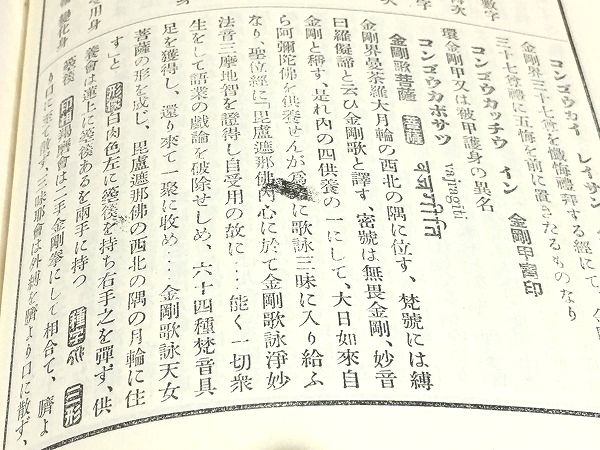 コンゴウカイ レイサン
金剛界三十七尊を懺悔禮拜する經にて、
三十七尊禮に五悔を前に置きたるものなり
コンゴウカッチウ イン 金剛甲冑印
環金剛甲又は被甲護身の異名
コンゴウカボサツ
金剛歌菩薩 菩薩 Vajragīti
金剛界曼荼羅大月輪の西北の隅に位す、梵號には縛
曰羅儗諦と云ひ金剛歌と譯す、密號は無畏金剛、妙音
金剛と稱す、是れ內の四供養の一にして、大日如來自
ら阿彌陀佛を供養せんが爲に歌詠三昧に入り給ふ
なり、聖位經に「毘盧遮那佛內心に於て金剛歌詠淨妙
法音三摩地智を證得し自受用の故に…能く一切衆
生をして語業の戲論を破除せしめ、六十四種梵音具
足を獲得し、還り來て一聚に收め…金剛歌詠天女
菩薩の形を成じ、毘盧遮那佛の西北の隅の月輪に住
す」と 形像 白肉色左に箜篌を持ち右手之を彈ず、供
養會は蓮上に箜篌あるを兩手に持つ 種子 三形
箜篌 印相 羯磨會は二手金剛拳にして相合て、臍よ
り口に至て散す、三昧耶會は外縛を臍より口に散ず、